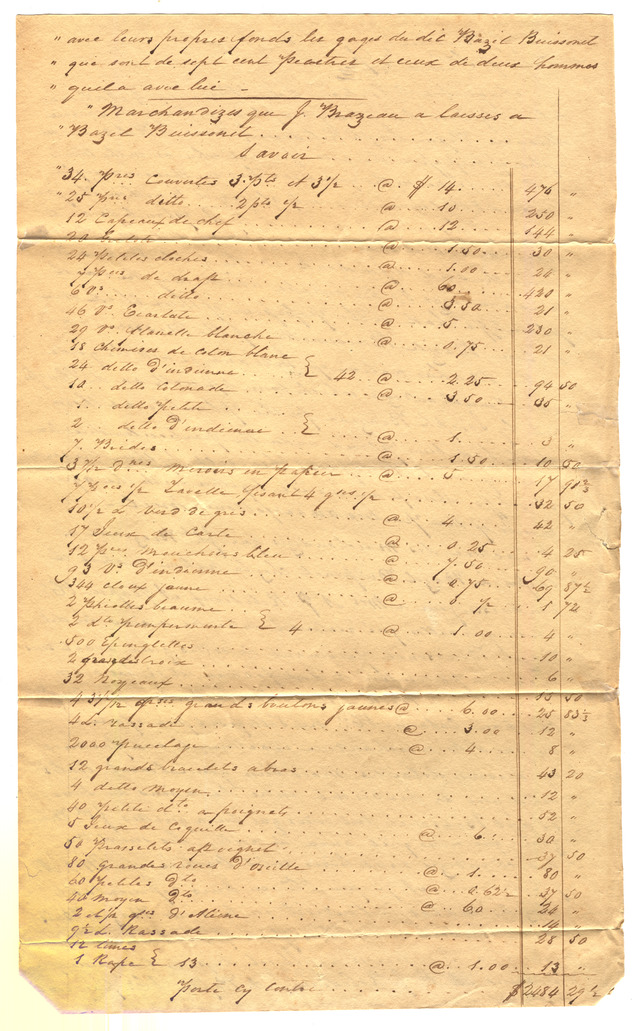 " avec leurs propres fonds les gages du dit Bazil Buissonet
" que sont de sept cent Peastres et ceux de deux hommes
" quil a avec lui —
" Marchandizes que J. Brazeau a laisses a
" Bazil Buissonet
Savoir
" 34. Pres Couvertes 3. Pts et 3 1/2 @ $ 14. 476 "
" 25 Pres ditto 2 pts 1/2 @ 10. 250 "
12 Capeaux de chef @ 12 144 "
20 @ 1.50 30 "
24 Petites cloches @ 1.00 24 "
7 Pces de drap @ 60 420 "
6 Vs ditto @ 3.50 21 "
46 Vs Ecarlate @ 5 230 "
29 Vs flanelle blanche @ 0.75 21 "
18 Chemises de coton blanc
24 ditto d'indienne } 42. @ 2.25 94 50
10 ditto Cotonade @ 3.50 35 "
1 ditto Petit
2 ditto d'indienne } @ 1. 3 "
7. Brides @ 1.50 10 50
3 7/12 Dnes Meroirs en papier @ 5 17 91 2/3
7 Pces 1/2 fesant 4 gses 1/2 32 50
10 1/2 L Verd de gris @ 4 42 "
17 Jeux de Carte @ 0.25 4 25
12 Pces Mouchoirs bleu @ 7.50 90 "
93 Vs D'indienne @ 0.75 69 87 1/2
344 cloux jaune @ 0. 1/2 1 72
2 Phiolles beaume
2 dto } 4 @ 1.00 4 "
500 Epinglettes 10 "
2 grandes Croix 6 "
32 Noyeaux 15 50
4 31/12 gses grands boutons jaunes @ 6.00 25 83 1/3
4 L. rassade @ 3.00 12 "
2000 @ 4 8 "
12 grands bracelets abras 43 20
4 ditto moyen 12 "
40 Petite dto a poignets 52 "
5 Jeux de Coquille @ 6 30 "
50 Brasselets a poignet 37 50
80 Grandes roues d'Oreille @ 1. 80 "
60 Petites Dto @ 0.62 1/2 37 50
40 Moyen Dto @ 60 24 "
2 1/2 gses d' 14 "
9 1/2 L Rassade 28 50
12 limes
1 Rape } 13 @ 1.00 13 "
Porte cy contre $ 2484 29 1/2